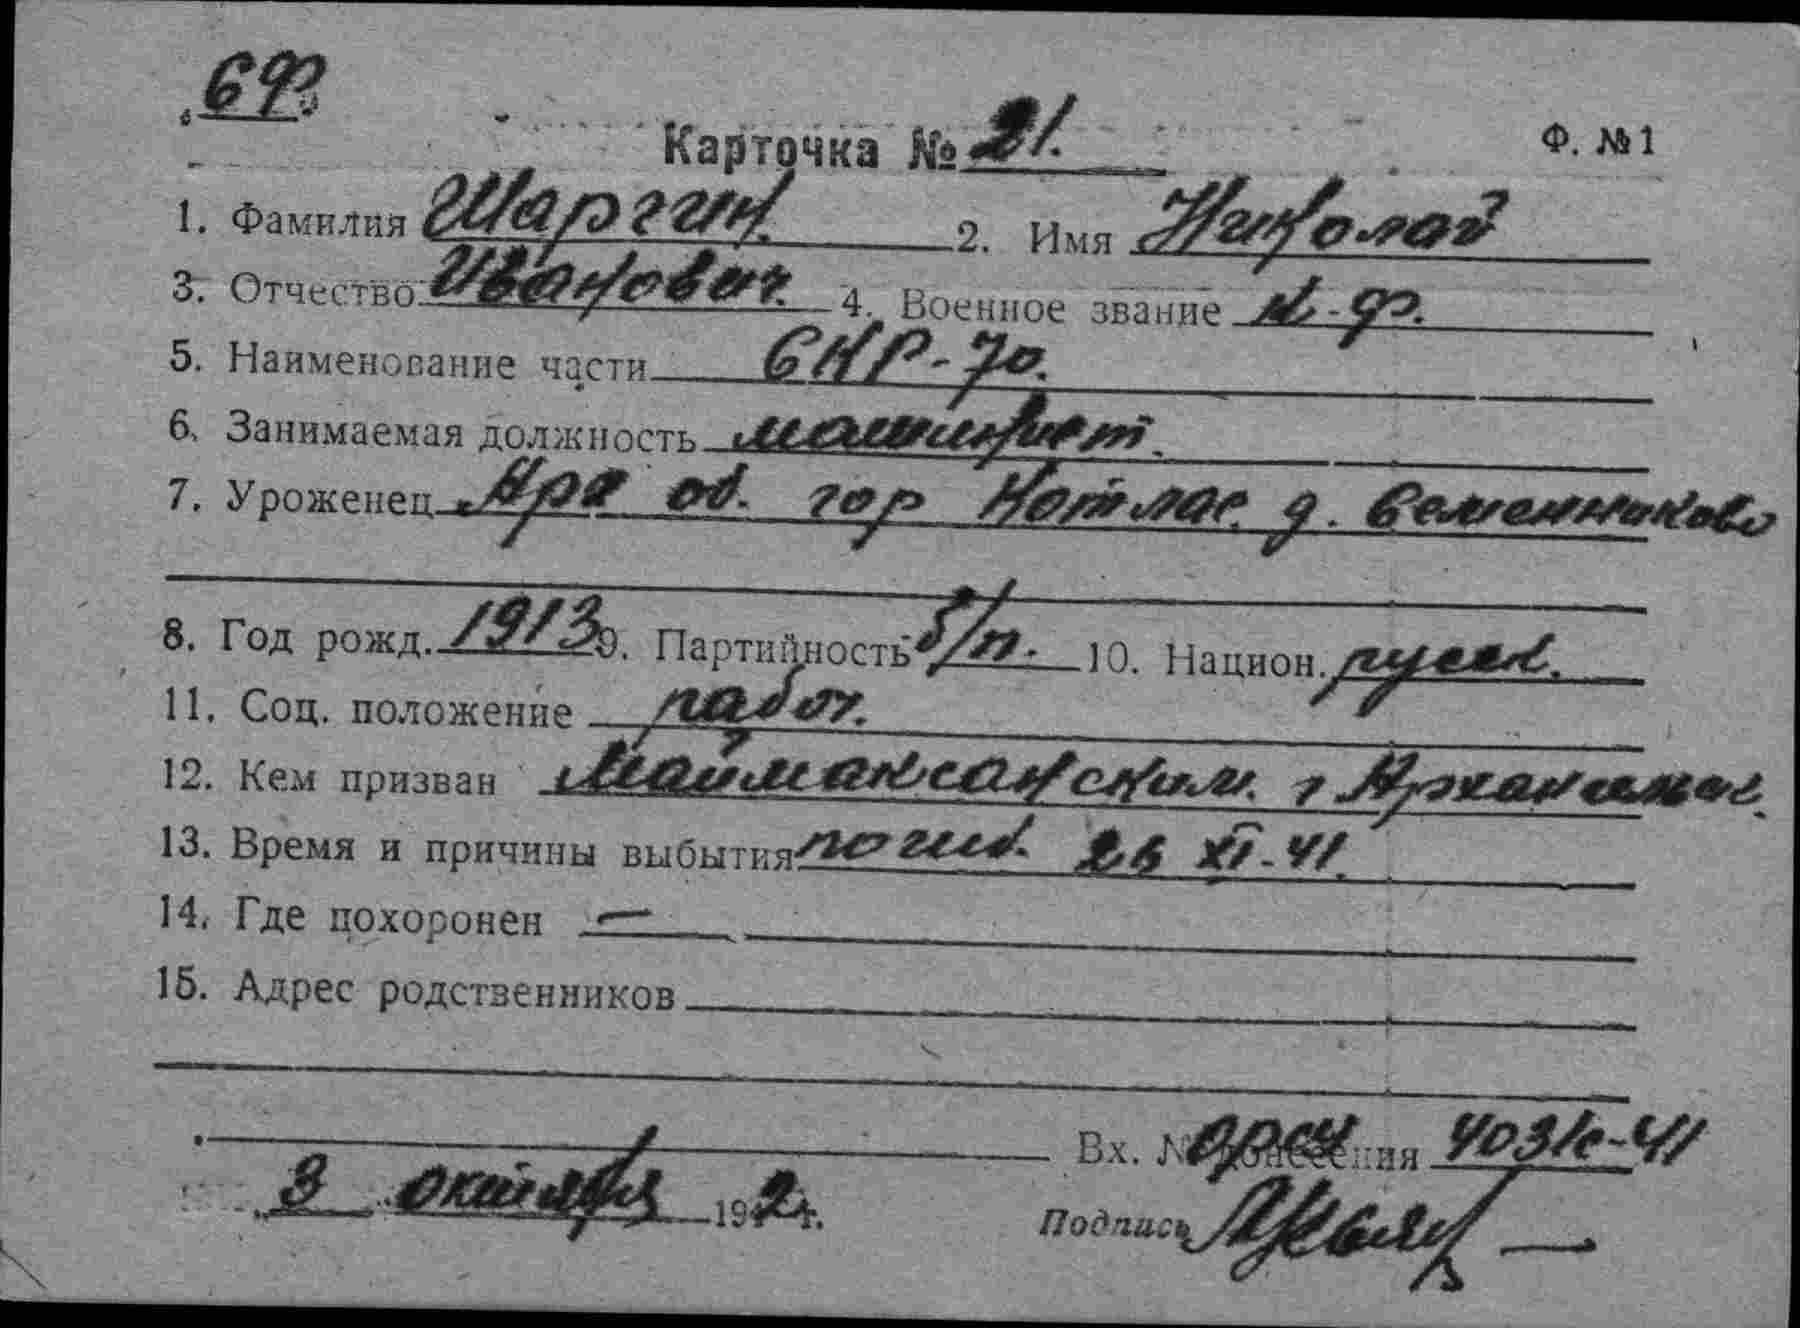 Карточка № 21. Ф. № 1
1. Фамилия Шаргин 2. Имя Николай
3. Отчество Иванович 4. Военное звание к-ф.
5. Наименование части СКР-70.
6. Занимаемая должность машинист.
7. Уроженец Арх об. гор Котлас д. Семенниково
8. Год рожд. 1913 9. Партийность б/п. 10. Национ. русск.
11. Соц. положение рабоч.
12. Кем призван Маймаксанским г
13. Время и причины выбытия погиб. XI-41.
14. Где похоронен —
15. Адрес родственников
Вх. №
3 октября 1942 г. Подпись